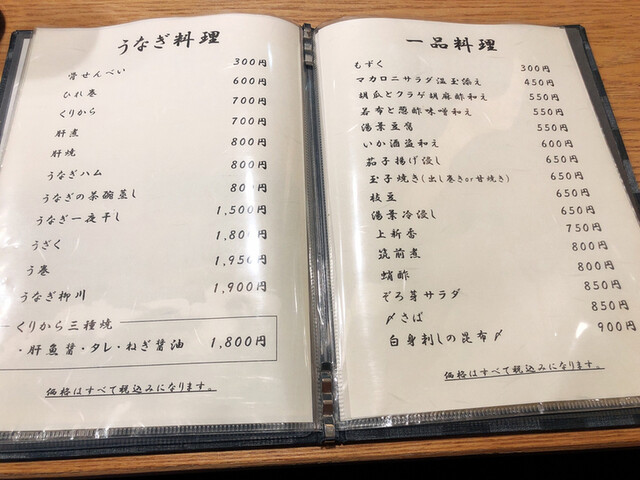 うなぎ料理
骨せんべい 300円
ひれ巻 600円
くりから 700円
肝煮 700円
肝焼 800円
うなぎハム 800円
うなぎの茶碗蒸し 800円
うなぎ一夜干し 1,500円
うざく 1,800円
う巻 1,950円
うなぎ柳川 1,900円
くりから三種焼
・肝魚醤・タレ・ねぎ醤油 1,800円
価格はすべて税込みになります。
一品料理
もずく 300円
マカロニサラダ温玉添え 450円
胡瓜とクラゲ胡麻酢和え 550円
若布と葱酢味噌和え 550円
湯葉豆腐 550円
いか酒盗和え 600円
茄子揚げ浸し 650円
玉子焼き(出し巻きor甘焼き) 650円
枝豆 650円
湯葉冷浸し 650円
上新香 750円
筑前煮 800円
蛸酢 800円
ぞろ芽サラダ 850円
〆さば 850円
白身刺しの昆布〆 900円
価格はすべて税込みになります。